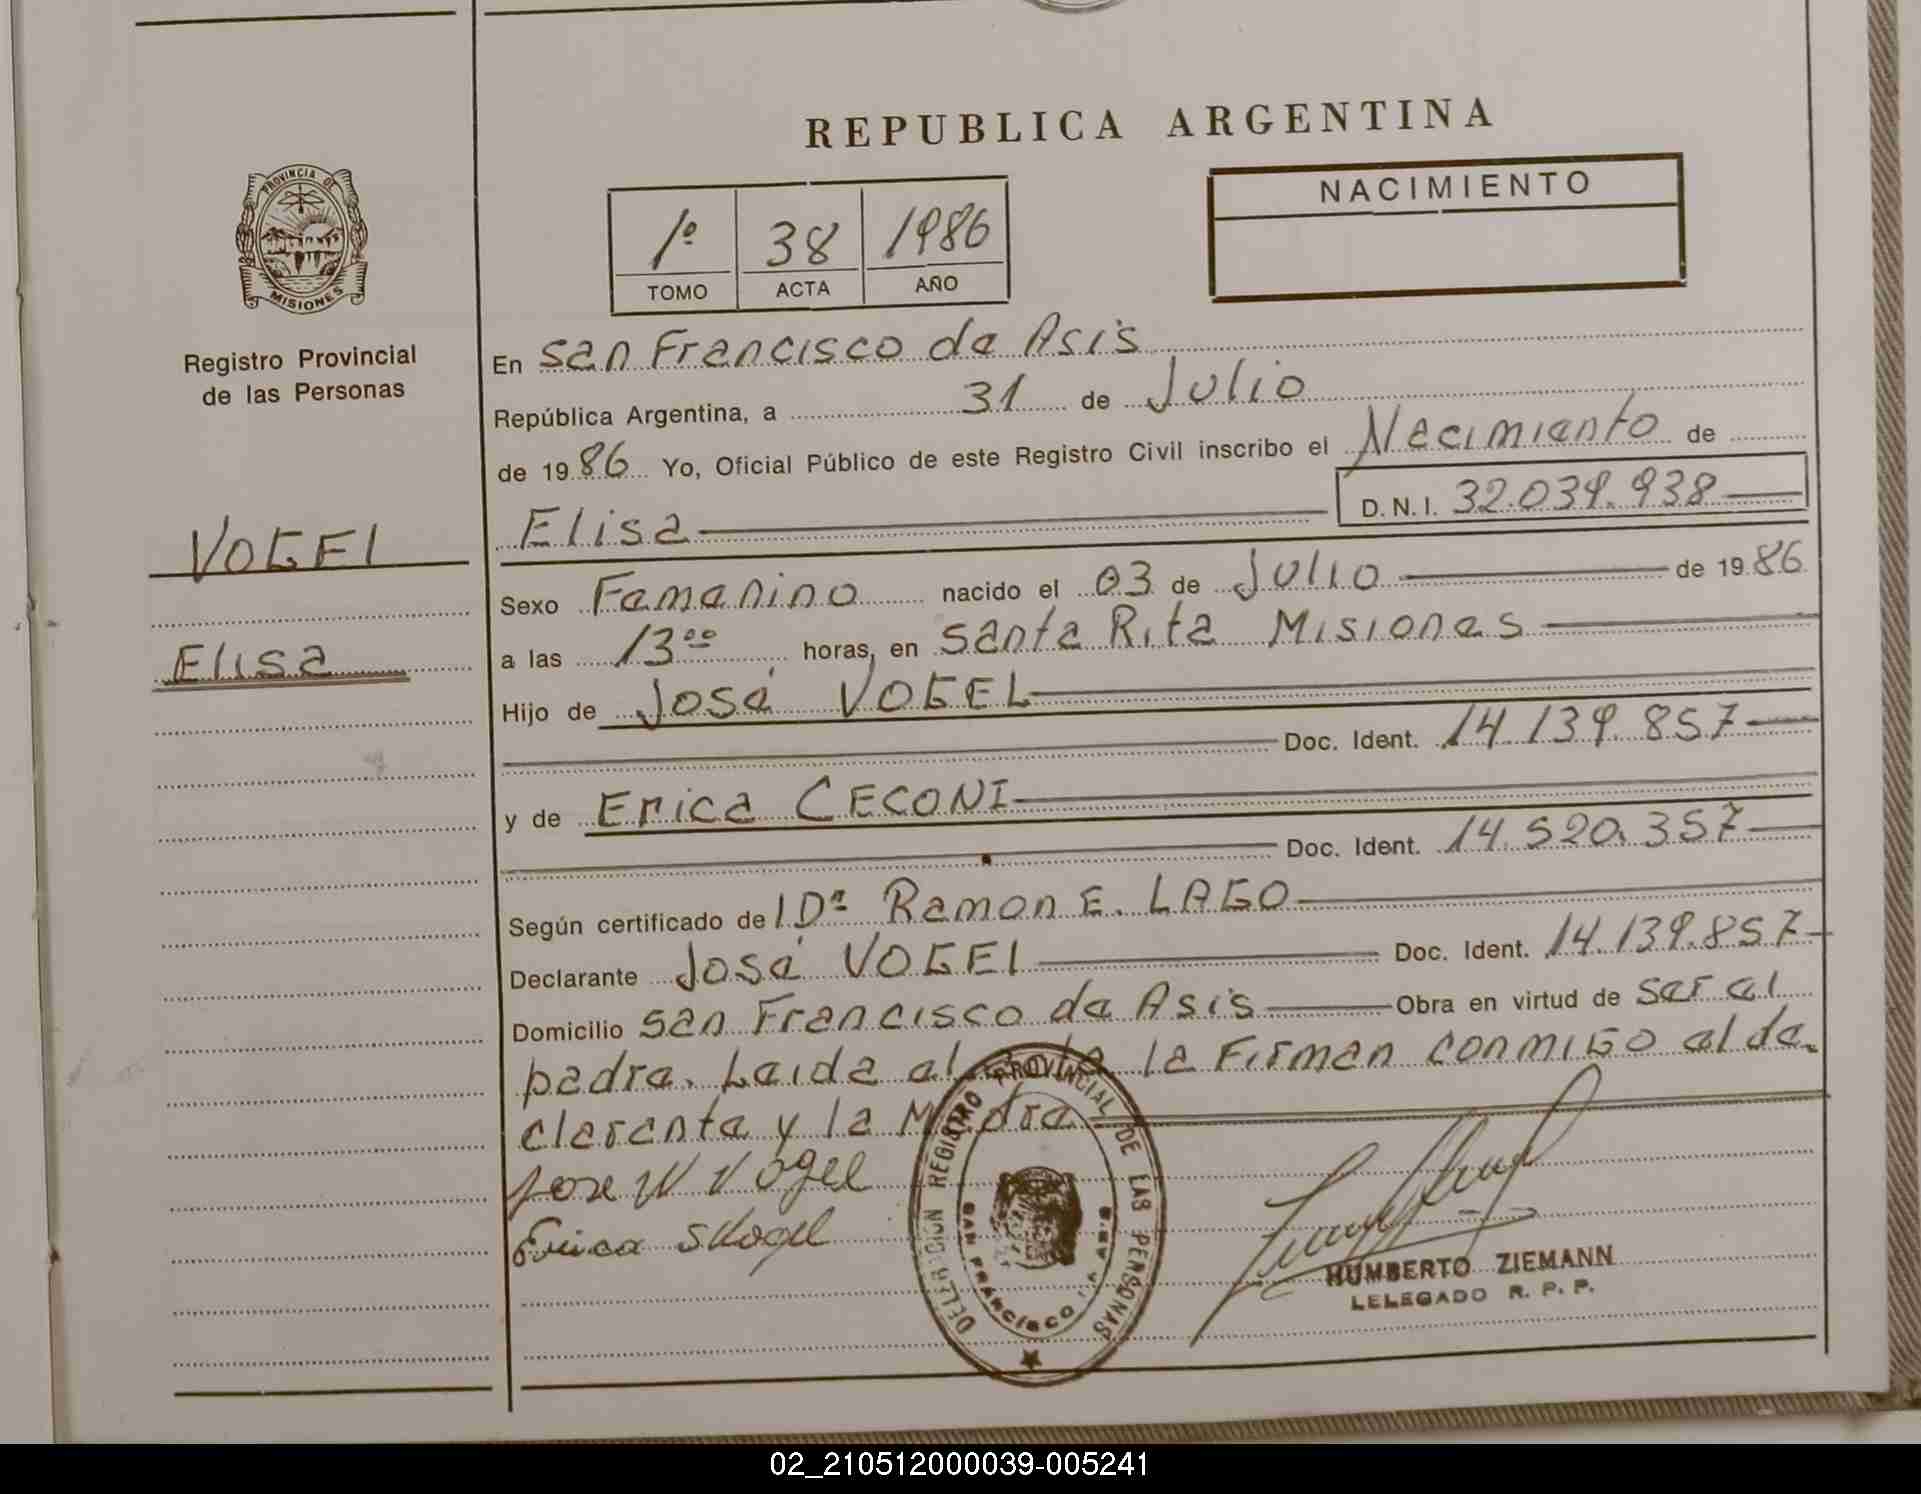 REPUBLICA ARGENTINA
PROVINCIA DE
MISIONES
Registro Provincial
de las Personas
VOGEL
Elisa
1º 38 1986
TOMO ACTA AÑO
NACIMIENTO
En San Francisco de Asís
República Argentina, a 31 de Julio
de 1986 Yo, Oficial Público de este Registro Civil inscribo el Nacimiento de
Elisa D.N.I. 32.039.938
Sexo Femenino nacido el 03 de Julio de 1986
a las 13ºº horas, en Santa Rita Misiones
Hijo de José VOGEL
Doc. Ident. 14.139.857
y de Erica CECONI
Doc. Ident. 14.520.357
Según certificado de l Dr Ramon E. LAGO
Declarante José VOGEL Doc. Ident. 14.139.857
Domicilio San Francisco de Asís Obra en virtud de ser el
padre. Leida el acta la Firman conmigo el de-
clarante y la Madre
Jose W Vogel
Erica S Vogel
DELEGACION REGISTRO PROVINCIAL DE LAS PERSONAS
SAN FRANCISCO DE ASIS
HUMBERTO ZIEMANN
LELEGADO R. P. P.
02_210512000039-005241